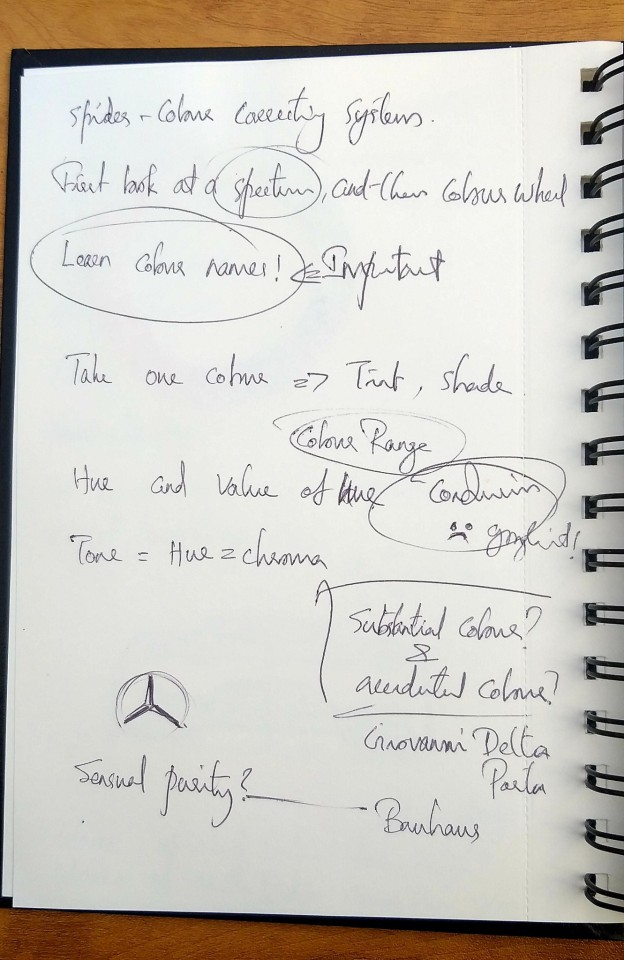 Spider - Colour Correcting Systems.
First look at a spectrum, and then Colour wheel
Learn Colour names! <= Important
Take one colour => Tint, Shade
Colour Range
Hue and Value of Hue
Tone = Hue = chroma
Substantial Colour?
&
accidental Colour?
Giovanni Delta
Porta
Sensual purity?
Bauhaus